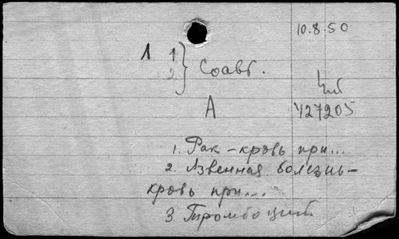 10.8.50
1 1
2 } Соавт.
А
Ч27205
1. Рак - кровь при...
2. Язвенная болезнь -
кровь при...
3. Тромбоцит